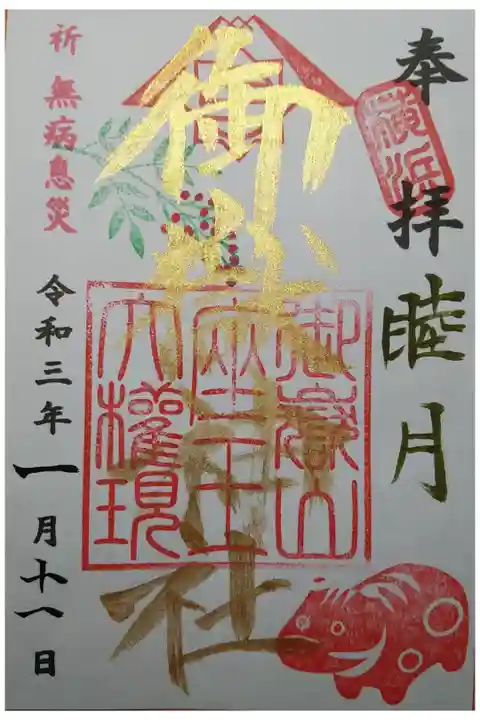 奉拝
横浜
睦月
御嶽神社
御嶽山
座王
大權現
祈 無病息災
令和三年一月十一日